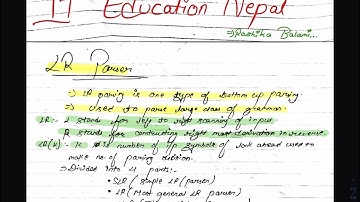 IT Education Nepal
⇒ Rashika Balami...
LR Parser
⇒ LR parsing is one type of bottom up parsing.
⇒ Used to parse large class of grammar.
LR :- L stands for left to right scanning of input
R stands for constructing right most derivation in reverse.
LR(K) :- K is number of i/p symbols of look ahead used to
make no. of parsing division.
⇒ Divided into 4 parts:-
• SLR (Simple LR (parser)
• LR (Most general LR parser)